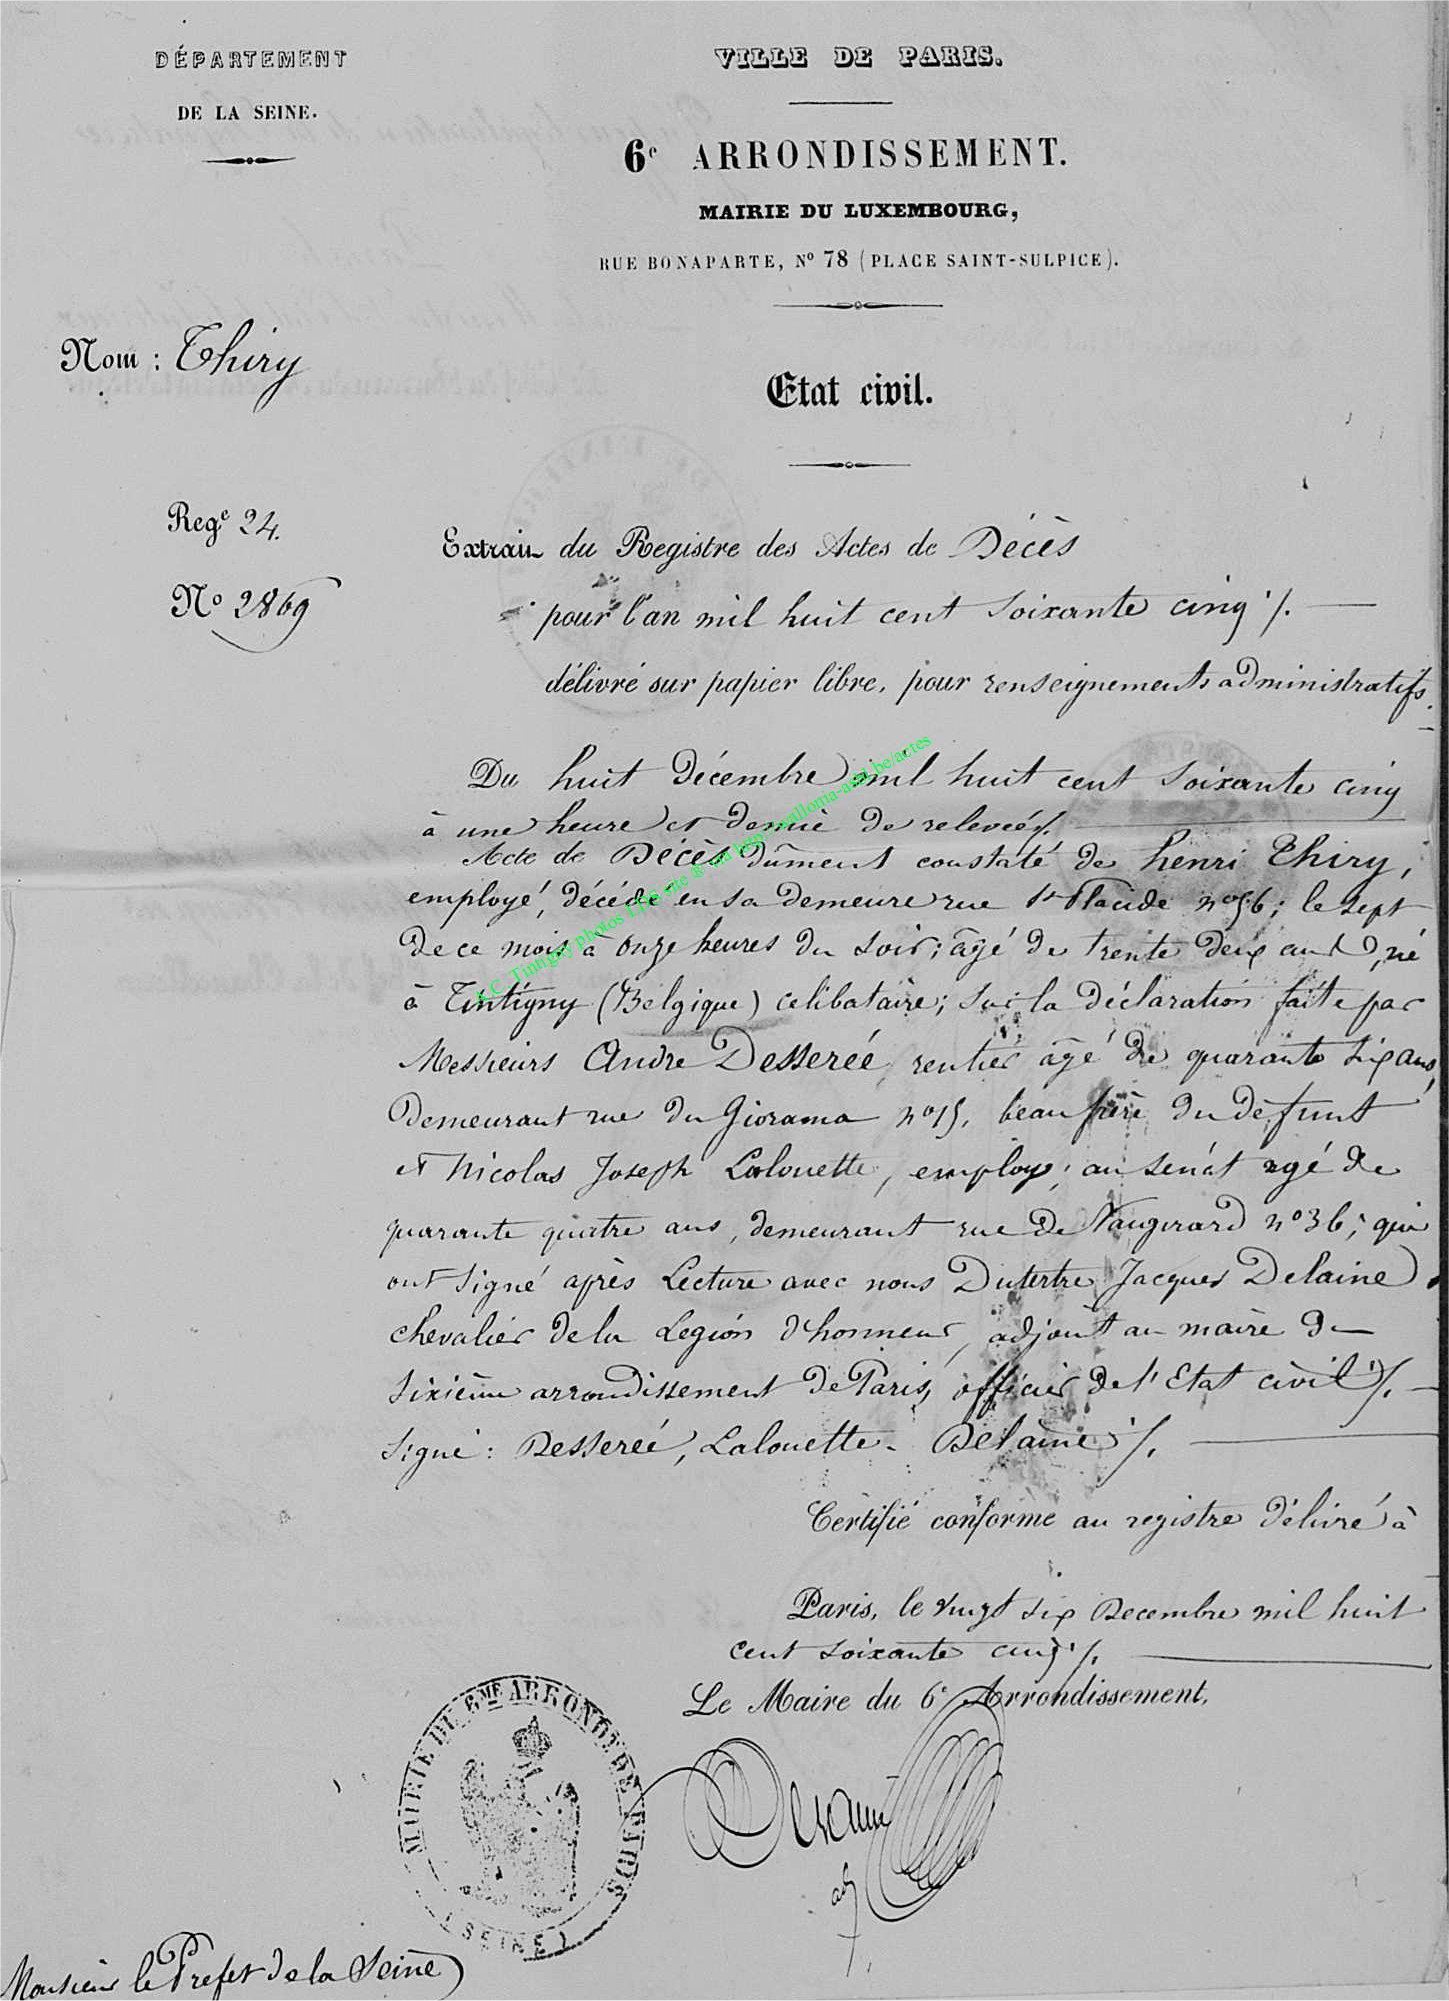 DÉPARTEMENT
DE LA SEINE.
VILLE DE PARIS.
6e ARRONDISSEMENT.
MAIRIE DU LUXEMBOURG,
RUE BONAPARTE, No 78 (PLACE SAINT-SULPICE).
Nom : Thiry
Etat civil.
Rege 24.
No 2869
Extrait du Registre des Actes de Décès
pour l'an mil huit cent soixante cinq ./.
délivré sur papier libre, pour renseignements administratifs.
Du huit décembre mil huit cent soixante cinq
à une heure et demie de relevée ./.
Acte de Décès dûment constaté de henri Thiry,
employé, décédé en sa demeure rue St Placide no 56; le sept
de ce mois à onze heures du soir; âgé de trente deux ans, né
à Tintigny (Belgique) celibataire; sur la déclaration faite par
Messieurs Andre Desserée, rentier âgé de quarante six ans,
demeurant rue du Giorama no 15, beau frère du défunt
et Nicolas Joseph Lalouette, employé au senat agé de
quarante quatre ans, demeurant rue de Vaugirard no 36; qui
ont signé après Lecture avec nous Dutertre Jacques Delaine
chevalier de la Legion d'honneur, adjoint au maire du
sixième arrondissement de Paris, officier de l'Etat civil ./.
signé : Desserée, Lalouette - Delaine ./.
Certifié conforme au registre délivré à
Paris, le vingt six Decembre mil huit
cent soixante cinq ./.
Le Maire du 6e Arrondissement,
adj
MAIRIE DU 6ME ARRONDT DE PARIS
(SEINE)
Monsieur le Prefet de la Seine
A.C. Tintigny photos LDS site ® via http://walloma-asbl.be/actes